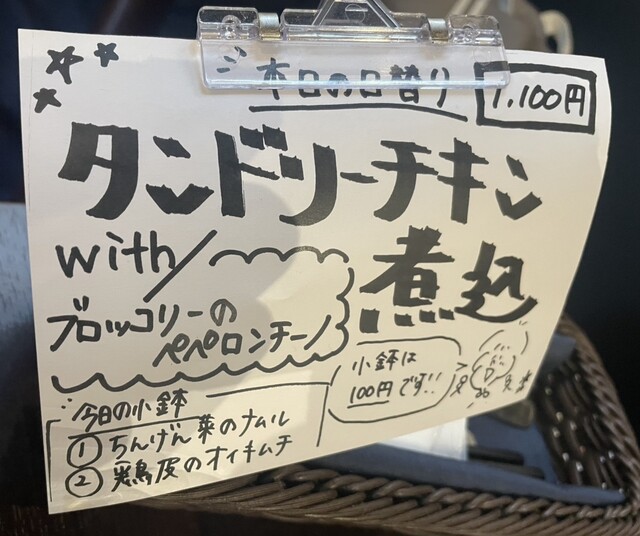 本日の日替り
1,100円
タンドリーチキン
煮込
with/
ブロッコリーの
ペペロンチーノ
小鉢は
100円です!!
今日の小鉢
① ちんげん菜のナムル
② 鶏皮のオイキムチ